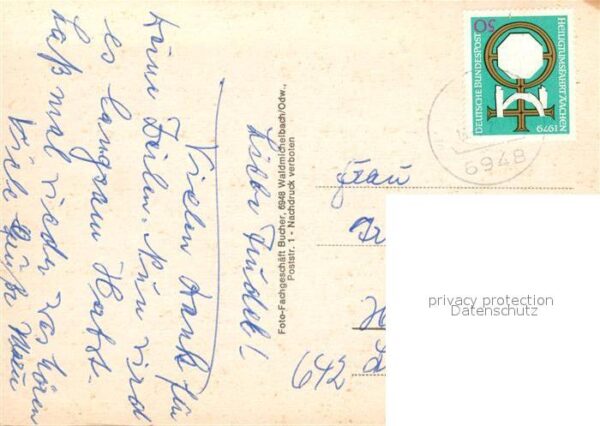 Liebe Trudel!
Vielen Dank für
Deine Zeilen. Nun wird
es langsam Herbst.
Laß mal wieder was hören
Viele Grüße
Foto-Fachgeschäft Bucher, 6948 Waldmichelbach/Odw.,
Poststr. 1 - Nachdruck verboten
50
DEUTSCHE BUNDESPOST
HEILIGTUMSFAHRT AACHEN
1979
6948
Frau
642
privacy protection
Datenschutz